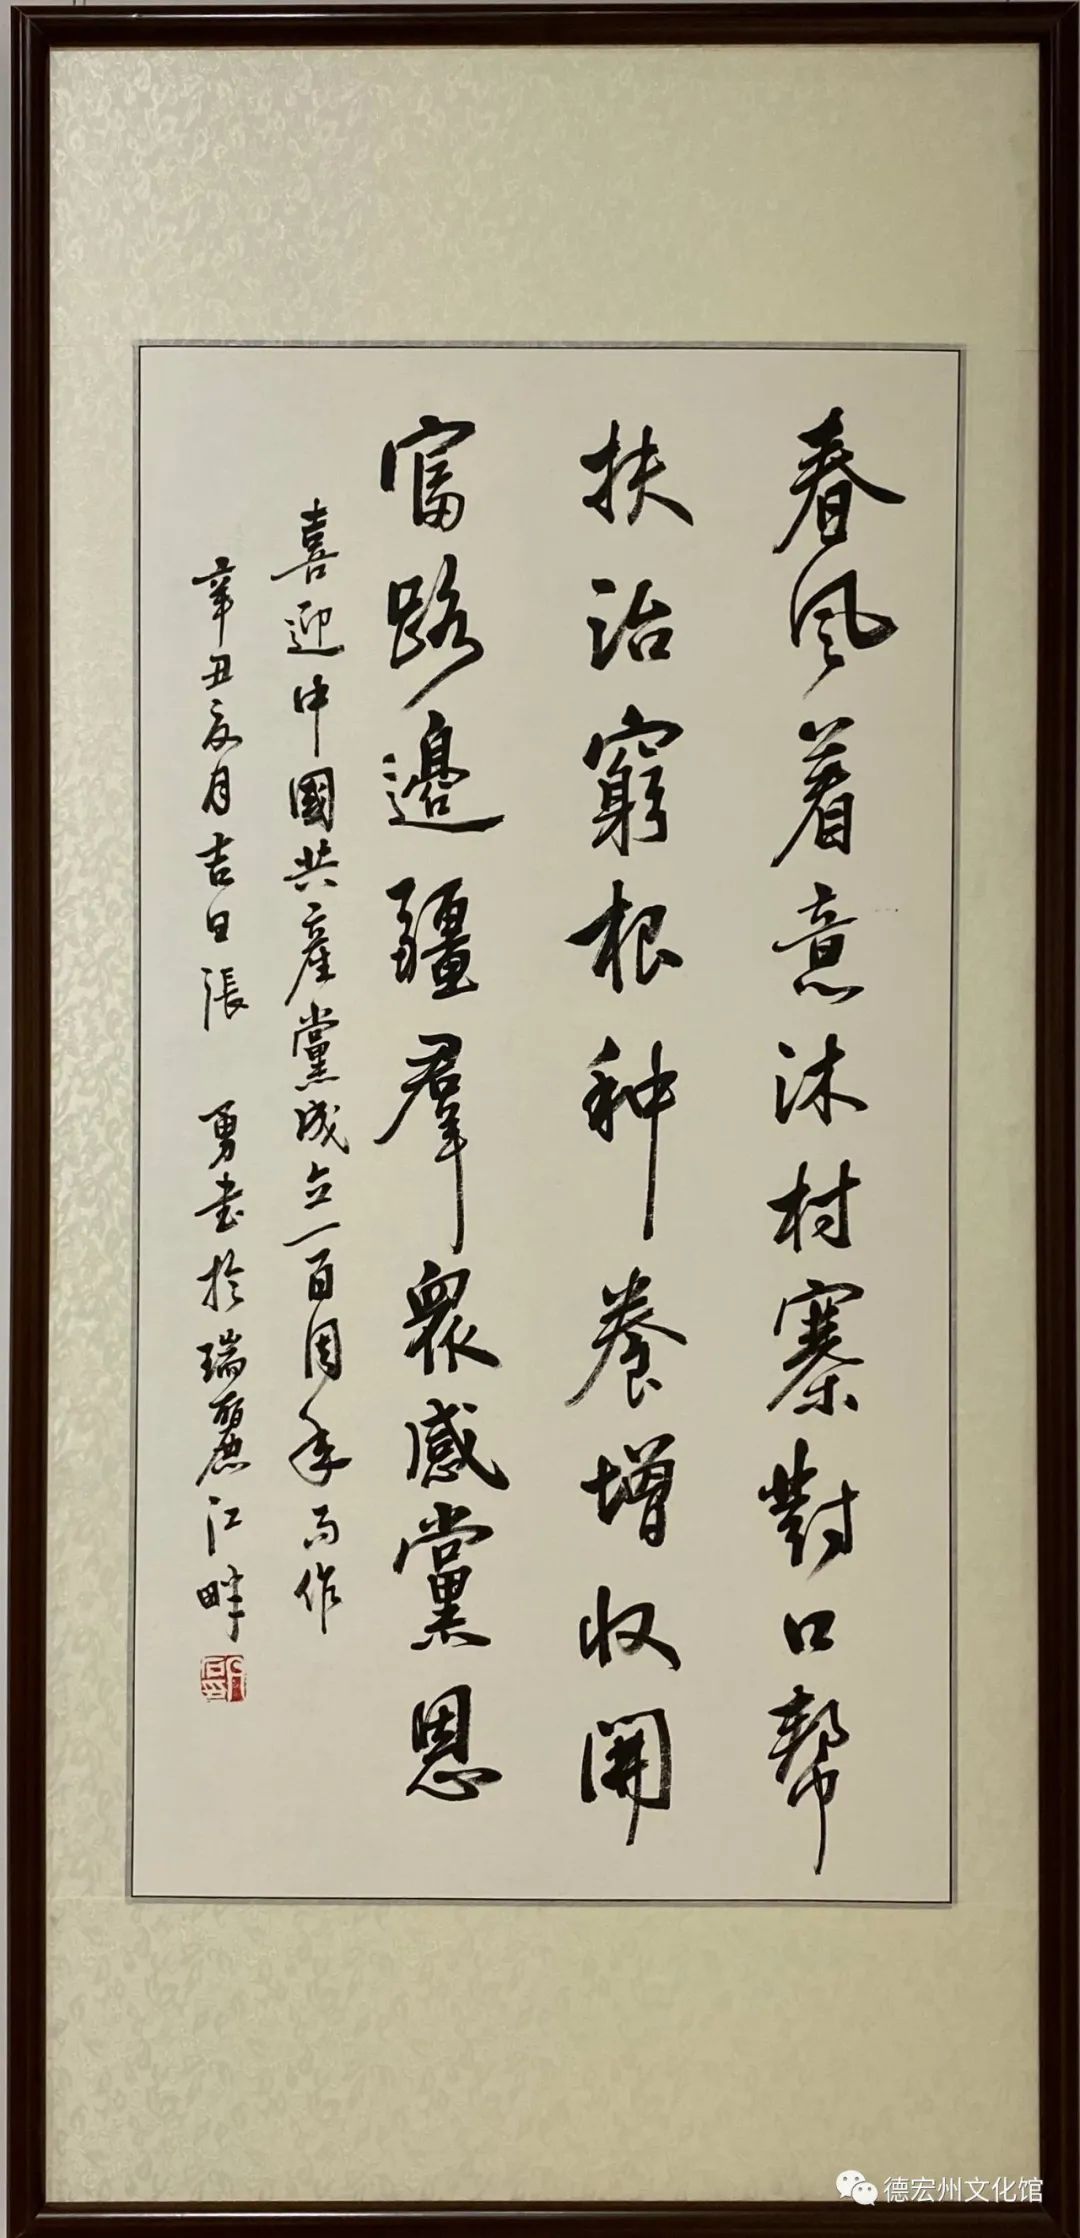 春風着意沐村寨對口幫
扶治窮根种養增收開
富路邊疆羣眾感黨恩
喜迎中國共產黨成立一百周年而作
辛丑亥月吉日張勇書於瑞麗江畔
德宏州文化馆